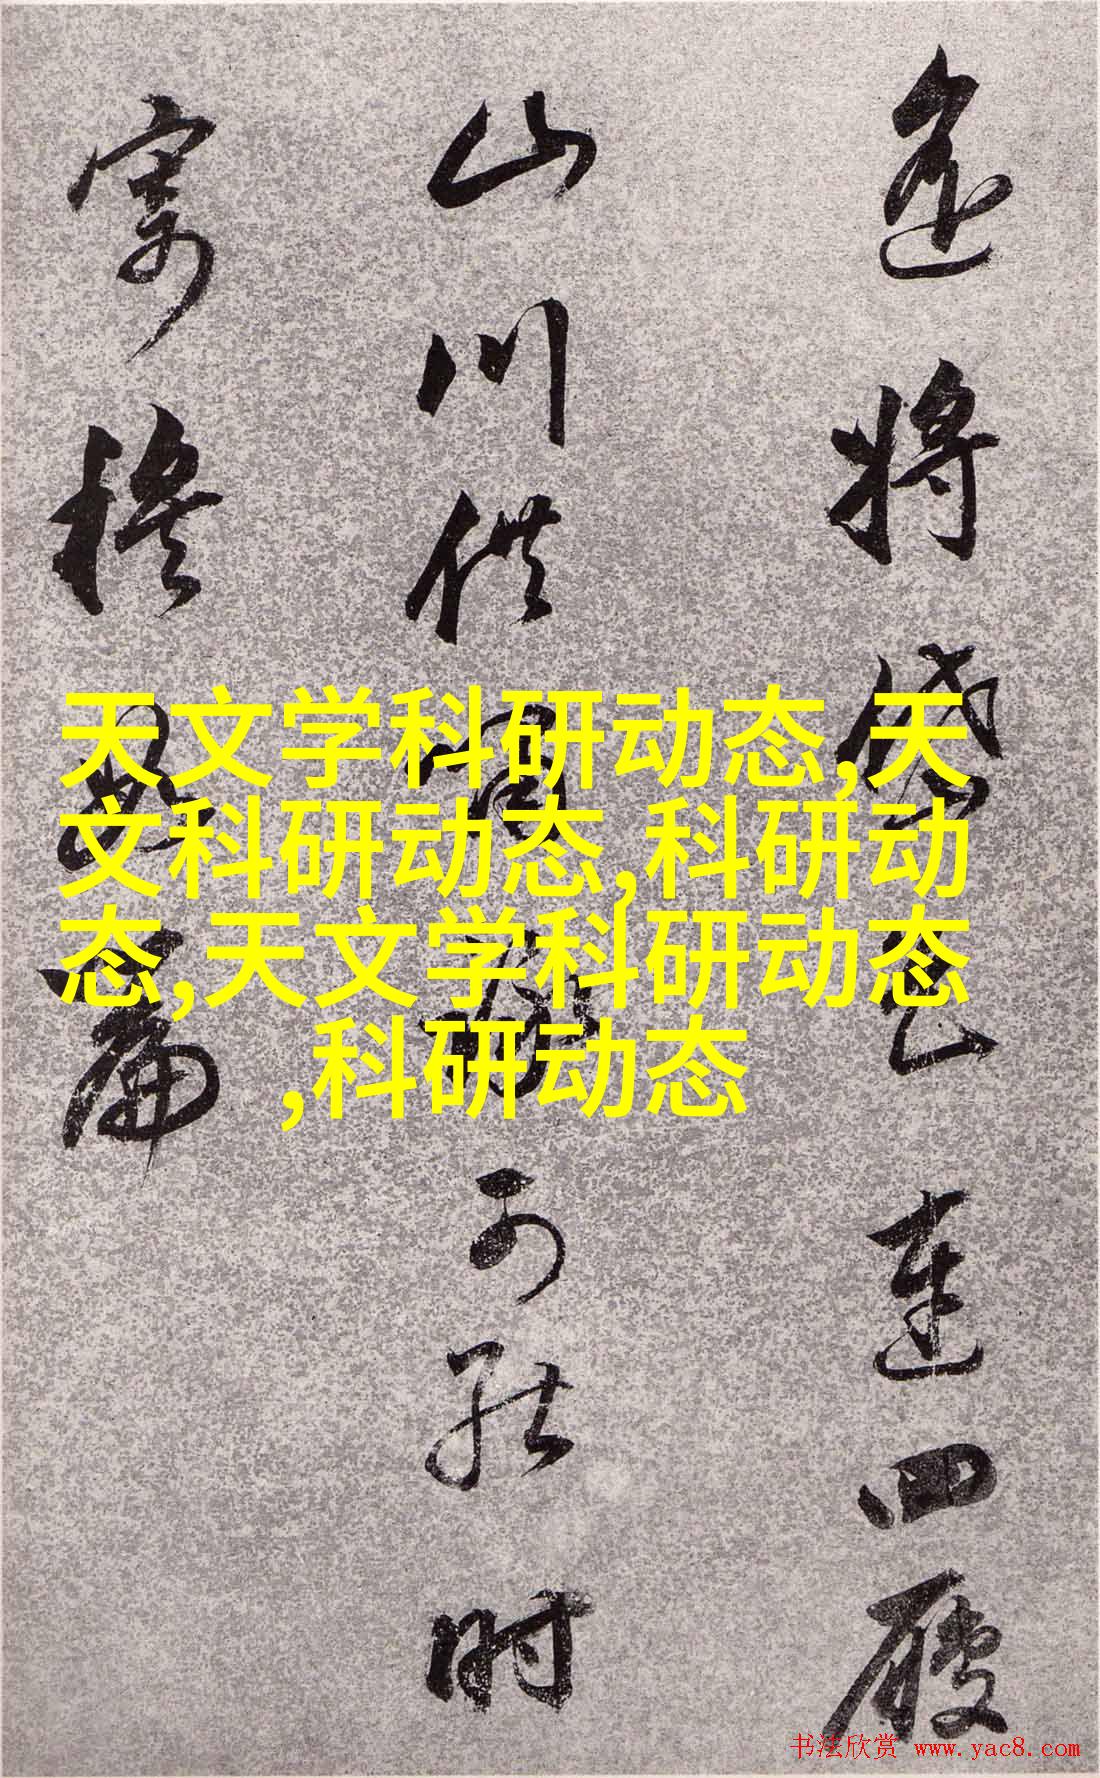 將岱色連四履
山川供可能時
寄穆篇
天文学科研动态,天
文科研动态,科研动
态,天文学科研动态
,科研动态
书法欣赏 www.yac8.com